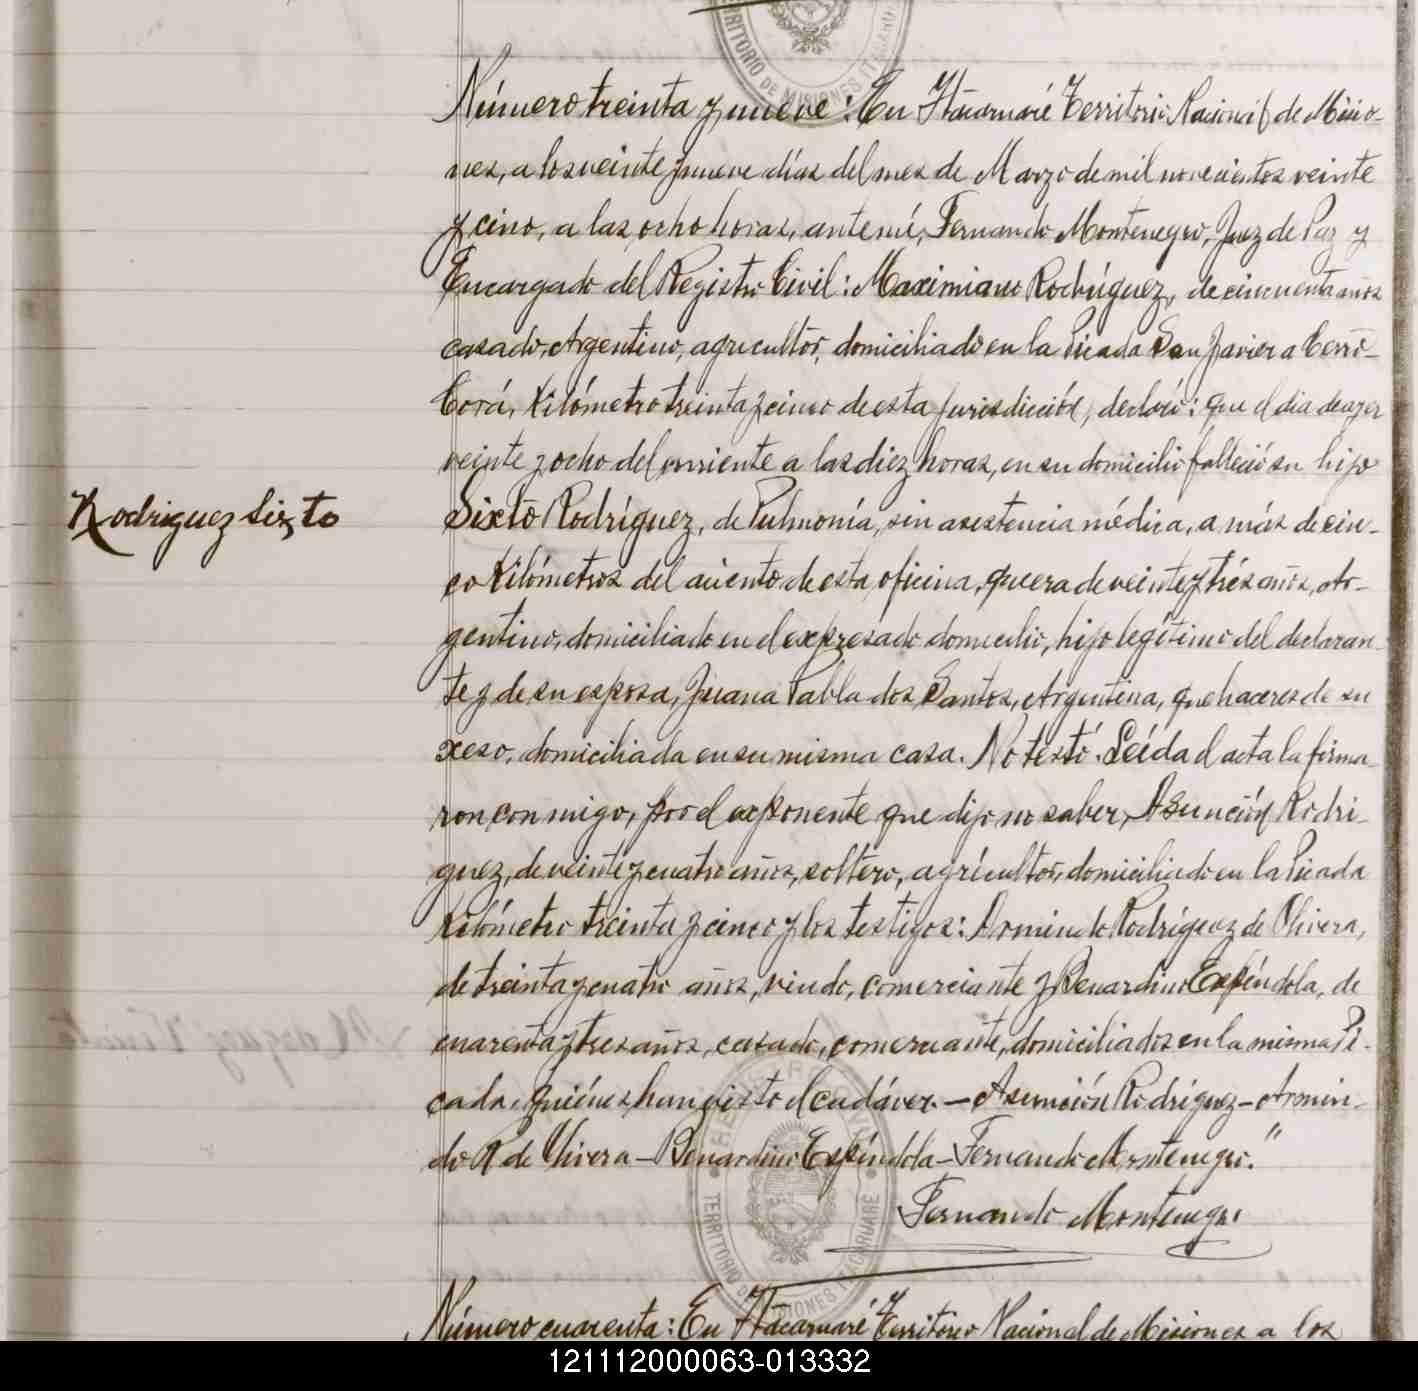 TERRITORIO DE MISIONES ITACARUARÉ
Número treinta y nueve: En Itacaruaré Territorio Nacional de Misio-
nes, a los veinte y nueve días del mes de Marzo de mil novecientos veinte
y cinco, a las ocho horas, ante mí, Fernando Montenegro, Juez de Paz y
Encargado del Registro Civil: Maximiano Rodríguez, de cincuenta años
casado, Argentino, agricultor, domiciliado en la Picada San Javier a Cerro-
Corá, Kilómetro treinta y cinco de esta jurisdicción, declaró: que el dia de ayer
veinte y ocho del corriente a las diez horas, en su domicilio falleció su hijo
Rodriguez Sixto
Sixto Rodríguez, de Pulmonía, sin asistencia médica, a más de cin-
co Kilómetros del asiento de esta oficina, que era de veinte y trés años, Ar-
gentino, domiciliado en el expresado domicilio, hijo legítimo del declaran-
te y de su esposa, Juana Pabla dos Santos, Argentina, quehaceres de su
xeso, domiciliada en su misma casa. No testó. Leída el acta la firma-
ron conmigo, por el exponente que dijo no saber, Asunción Rodri-
guez, de veinte y cuatro años, soltero, agrícultor, domiciliado en la Picada
Kilómetro treinta y cinco y los testigos: Armindo Rodríguez de Olivera,
de treinta y cuatro años, viudo, comerciante y Benardino Espíndola, de
cuarenta y tres años, casado, comerciante, domiciliados en la misma Pi-
cada, quiénes han visto el cadáver. — Asunción Rodríguez — Armin-
do R de Olivera — Benardino Espíndola — Fernando Montenegro."
Fernando Montenegro
TERRITORIO DE MISIONES ITACARUARÉ
Número cuarenta: En Itacaruaré Territorio Nacional de Misiones a los
121112000063-013332